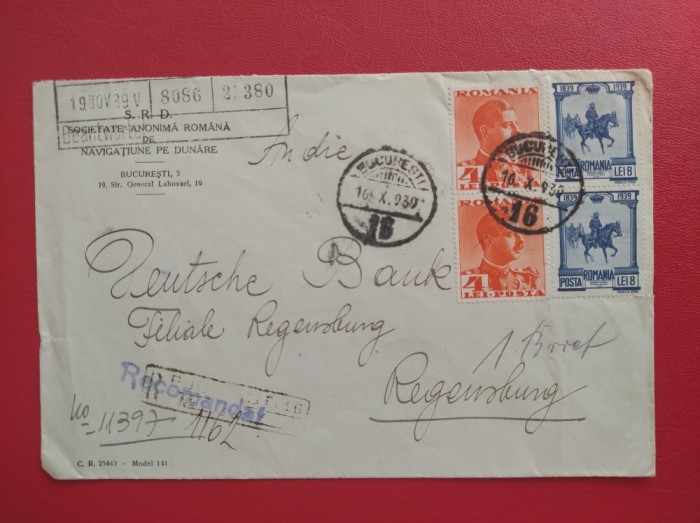 19. NOV 39 V 8086 2 380
S. R. D.
SOCIETATE ANONIMĂ ROMÂNĂ
DE
NAVIGAȚIUNE PE DUNĂRE
BUCUREȘTI, 3
19, Str. General Lahovari, 19
An die
BUCUREȘTI
10. X. 939
16
BUCUREȘTI
10. X. 939
16
ROMANIA
4
LEI POSTA
ROMANIA
4
LEI POSTA
1839 1939
ROMANIA
POSTA LEI 8
1839 1939
ROMANIA
POSTA LEI 8
Deutsche Bank
Filiale Regensburg
1 Brief
Regensburg
Recomandat
No 11397 1162
C. R. 25443 – Model 141